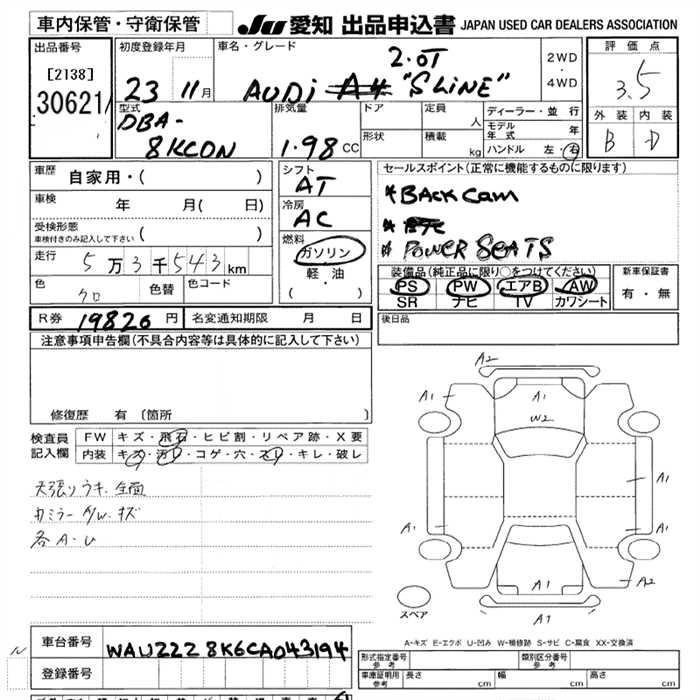 車内保管・守衛保管
JU 愛知 出品申込書 JAPAN USED CAR DEALERS ASSOCIATION
出品番号
[2138]
30621
初度登録年月
23 11月
車名・グレード
2.0T
AUDi A4 "S LiNE"
2WD
4WD
評価点
3.5
外装 内装
B D
型式
DBA-
8KCDN
排気量
1.98 CC
ドア
形状
定員 人
積載 kg
ディーラー・並 行
モデル年式 年
ハンドル 左・右
車歴 自家用・( )
車検 年 月( 日)
受検形態
車検付きのみ記入して下さい ( )
走行 5万3千543km
色 クロ 色替 色コード
シフト
AT
冷房
AC
燃料
ガソリン
軽・油
( ・ )
セールスポイント(正常に機能するものに限ります)
* BACK Cam
*
* POWER SEATS
装備品(純正品に限り○をつけてください)
PS PW エアB AW
SR ナビ TV カワシート
新車保証書
有・無
R券 19820 円 名変通知期限 月 日
後日品
注意事項申告欄(不具合内容等は具体的に記入して下さい)
修復歴 有 〔箇所 〕
検査員記入欄
FW キズ・飛石・ヒビ割・リペア跡・X要
内装 キズ・汚レ・コゲ・穴・スレ・キレ・破レ
天張りウキ 全面
カミラー A/W キズ
各A・U
A2
A1
A1
W2
A1
A1
A1
A1
A2
A1
スペア
A-キズ E-エクボ U-凹み W-補修跡 S-サビ C-腐食 XX-交換済
車台番号 WAUZZZ8K6CA043194
登録番号
形式指定番号 参考
類別区分番号 参考
車庫証明用 参考 長さ cm 幅 cm 高さ cm